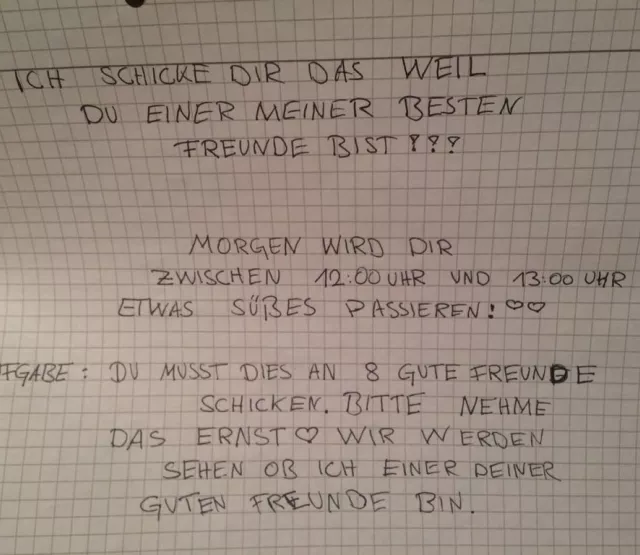 ICH SCHICKE DIR DAS WEIL
DU EINER MEINER BESTEN
FREUNDE BIST???
MORGEN WIRD DIR
ZWISCHEN 12:00 UHR UND 13:00 UHR
ETWAS SÜßES PASSIEREN! ♡♡
FGABE: DU MUSST DIES AN 8 GUTE FREUNDE
SCHICKEN. BITTE NEHME
DAS ERNST ♡ WIR WERDEN
SEHEN OB ICH EINER DEINER
GUTEN FREUNDE BIN.